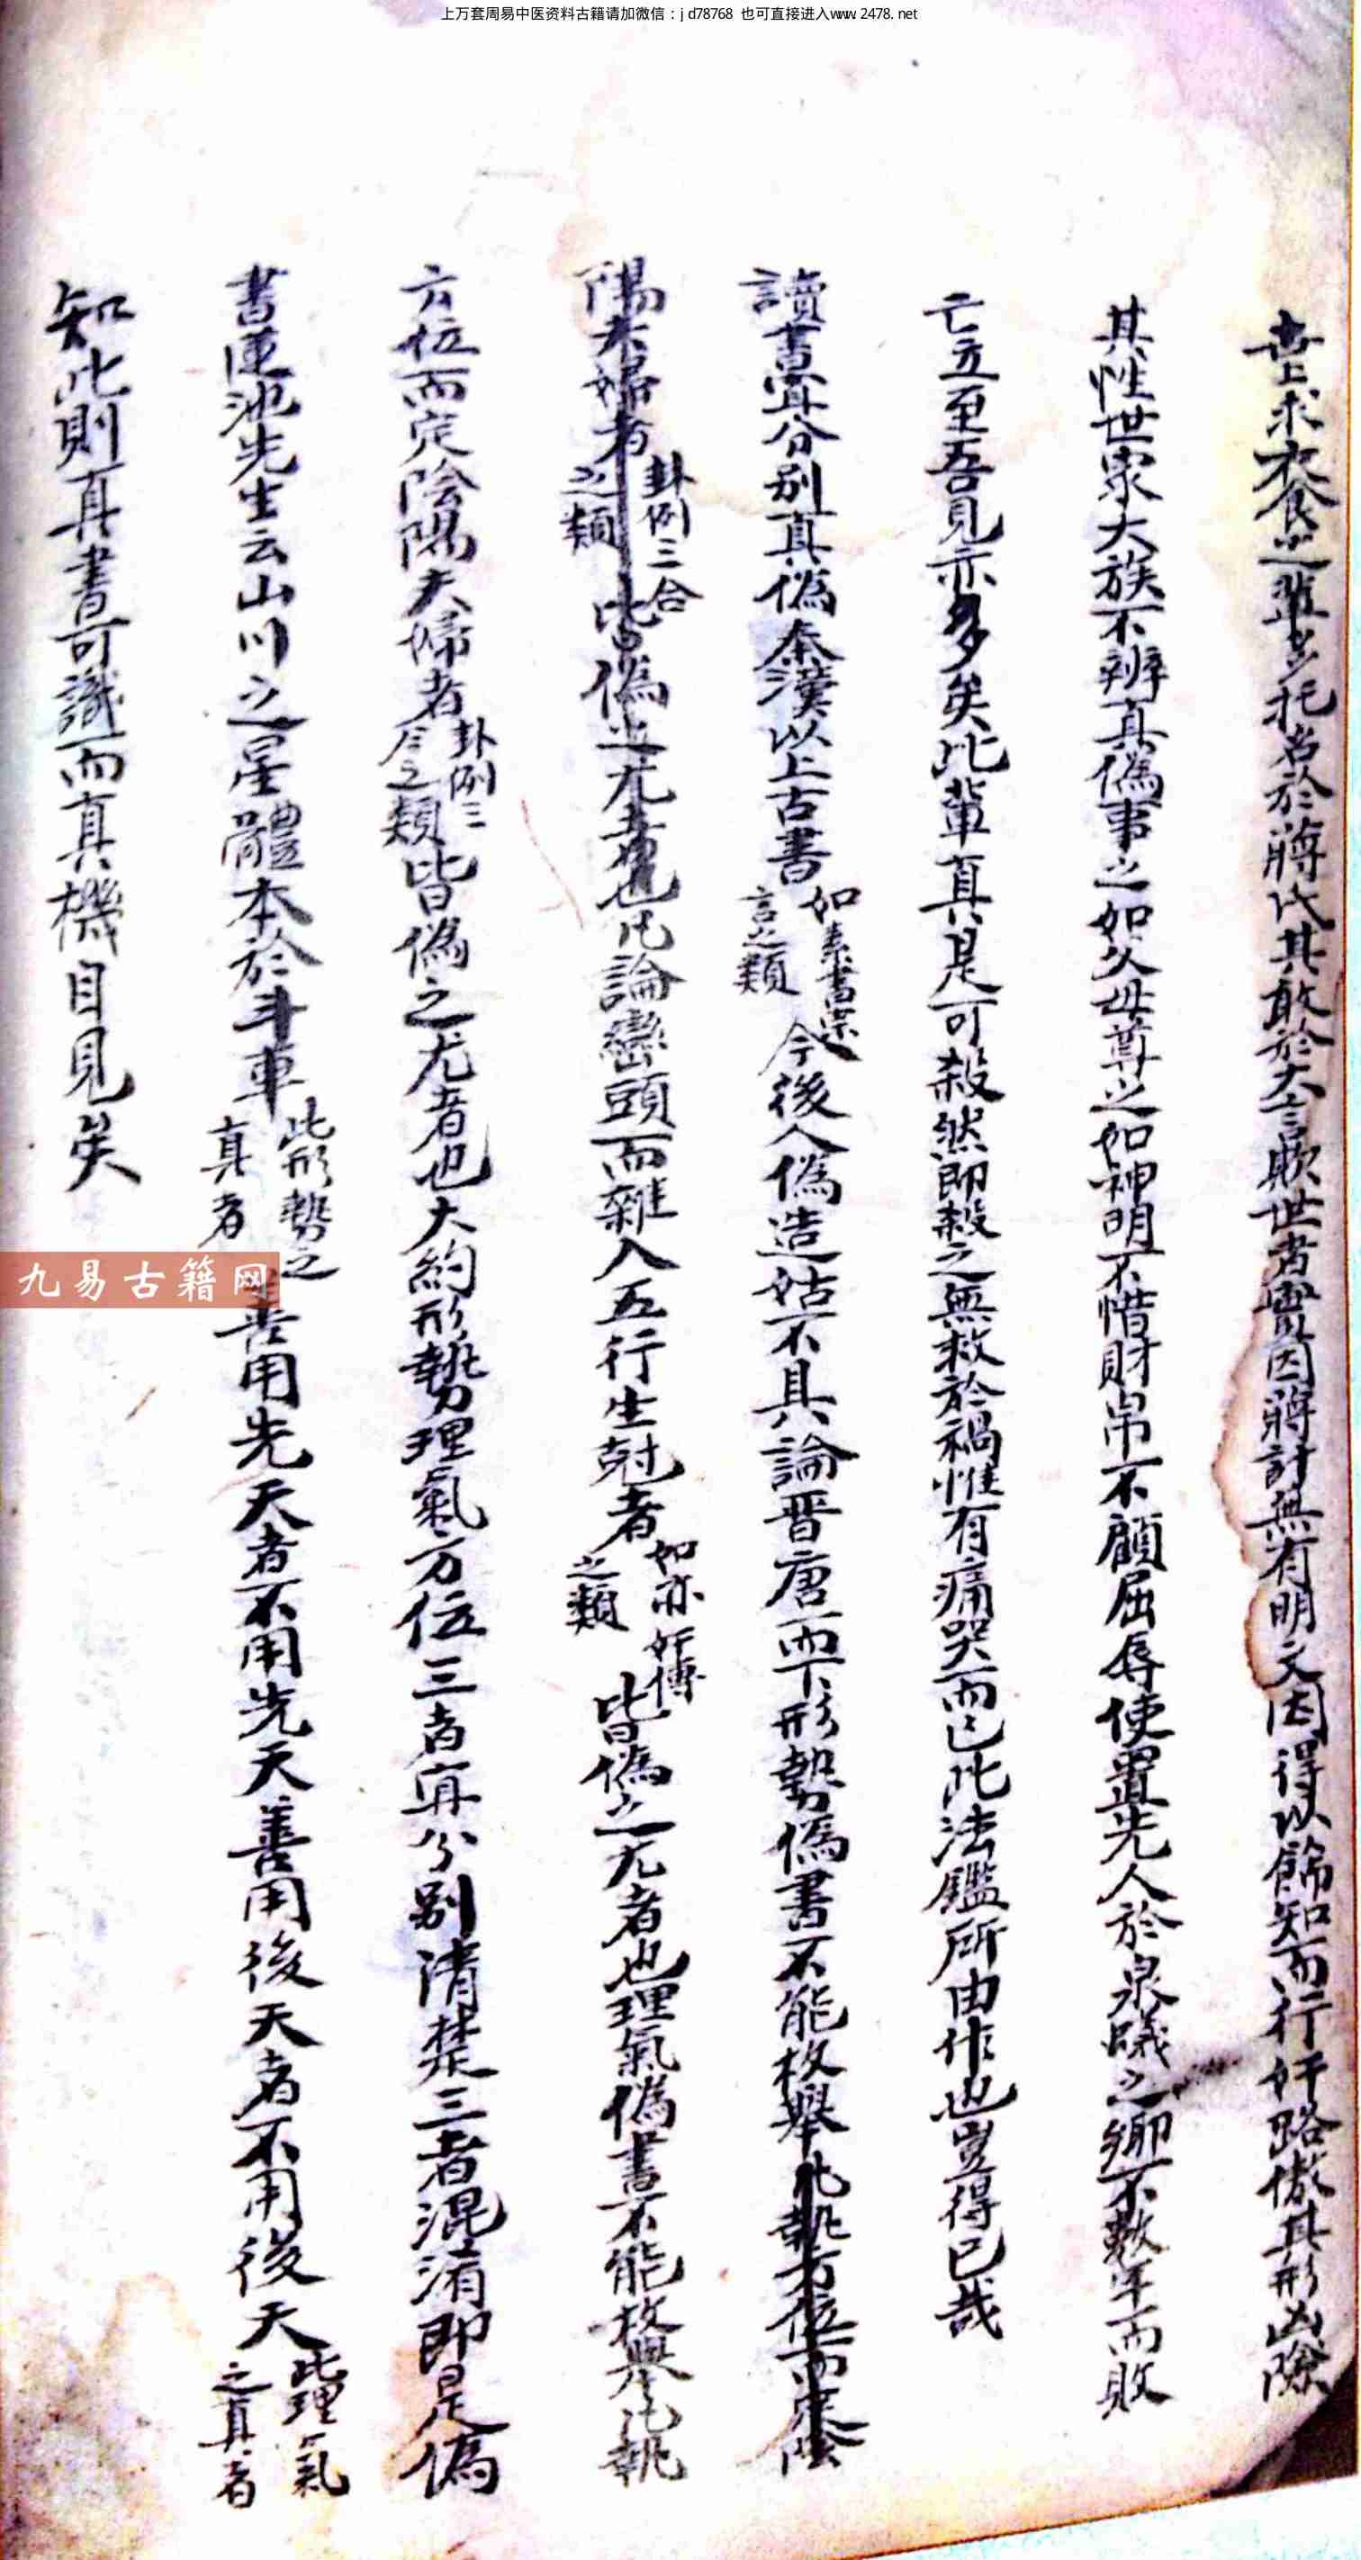 上万套周易中医资料古籍请加微信：jd78768 也可直接进入www.2478.net
世上求衣食之輩多托名於蔣氏其敢於大言欺世者實因蔣計無有明文因得以飾知而行奸路倣其形凶險
其性世家大族不辨真偽事之如父母尊之如神明不惜財帛不顧屈辱使置先人於泉蟻之鄉不數年而敗
亡立至吾見亦多矣此輩真是可殺然即殺之無救於禍惟有痛哭而已此法鑑所由作也豈得已哉
讀書宜分別真偽秦漢以上古書如素書 言之類今後人偽造姑不具論晋唐而下形勢偽書不能枚舉凡執方位而定陰
陽夫婦者卦例三合之類皆偽之尤者也凡論巒頭而雜入五行生尅者之類皆偽之尤者也理氣偽書不能枚舉凡執
方位而定陰陽夫婦者卦例三合之類皆偽之尤者也大約形勢理氣方位三者宜分別清楚三者混淆即是偽
書蓮池先生云山川之星體本於斗車此形勢之真者善用先天者不用先天善用後天者不用後天此理氣之真者
知此則真書可識而真機自見矣
九易古籍网